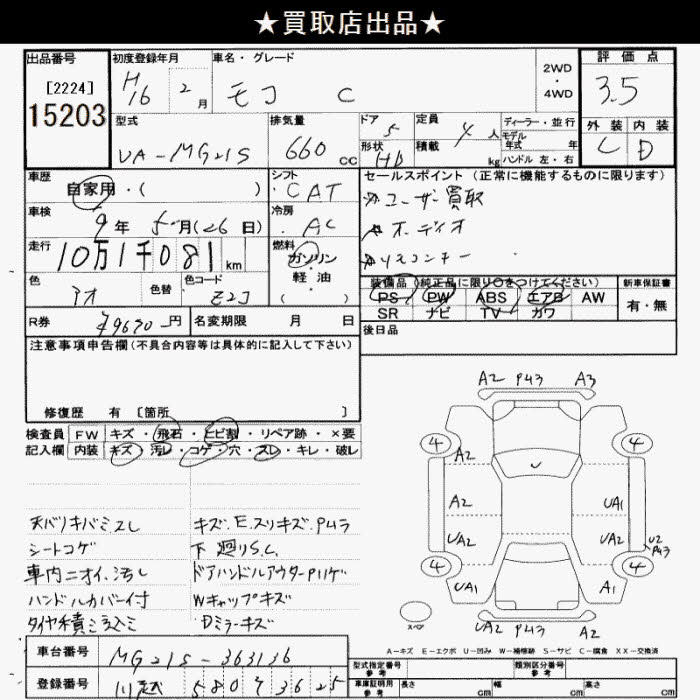 ★買取店出品★
出品番号
[2224]
15203
初度登録年月
H16 2月
車名・グレード
モコ C
2WD
・
4WD
評価点
3.5
外装 内装
C D
型式
UA-MG21S
排気量
660 cc
ドア 5
形状 HB
定員 4人
積載 kg
ディーラー・並行
モデル
年式 年
ハンドル 左・右
車歴
自家用・( )
シフト
CAT
セールスポイント (正常に機能するものに限ります)
ユーザー買取
オーディオ
リモコンキー
車検
9年 5月(26日)
冷房
AC
走行
10万1千081km
燃料
ガソリン
軽油
( )
色
アオ
色替
色コード
Z2J
装備品(純正品に限り○をつけてください)
PS PW ABS エアB AW
SR ナビ TV カワ
新車保証書
有・無
R券 ¥9670円
名変期限 月 日
後日品
注意事項申告欄(不具合内容等は具体的に記入して下さい)
修復歴 有 [箇所 ]
検査員 FW キズ・飛石・ヒビ割・リペア跡・×要
記入欄 内装 キズ・汚レ・コゲ・穴・スレ・キレ・破レ
天バリキバミスレ
シートコゲ
車内ニオイ、汚レ
ハンドルカバー付
タイヤ積ミ込ミ
キズ、E、スリキズ、Pムラ
下廻りS.C.
ドアハンドルアウターPハゲ
Wキャップキズ
Dミラーキズ
A2 Pム3 A3
4 4
A2
A2 UA1
UA2 UA2 U2
Aキ3
4 4
UA1 A1
スペア
UA2 Pム3 A2
A-キズ E-エクボ U-凹み W-補修跡 S-サビ C-腐食 XX-交換済
車台番号 MG21S-363136
登録番号 川越 580 ワ 3625
型式指定番号
参考
類別区分番号
参考
車庫証明用
参考
長さ cm 幅 cm 高さ cm